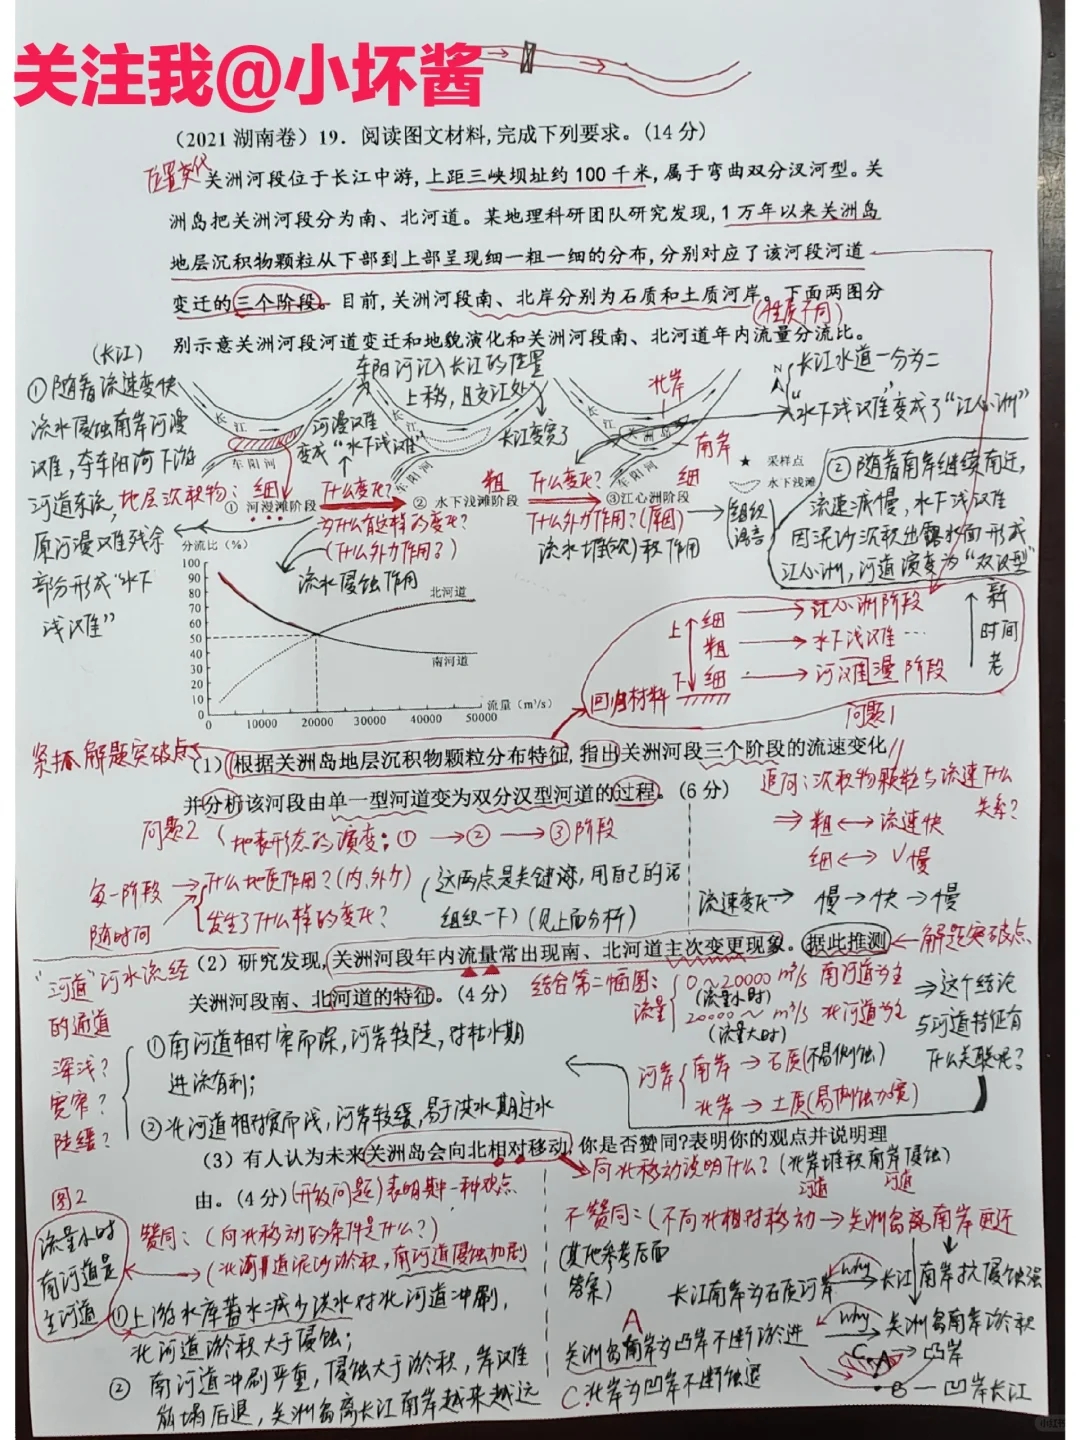 关注我@小坏酱
（2021 湖南卷）19．阅读图文材料,完成下列要求。(14分)
位置变化
关洲河段位于长江中游,上距三峡坝址约100千米,属于弯曲双分汊河型。关
洲岛把关洲河段分为南、北河道。某地理科研团队研究发现,1万年以来关洲岛
地层沉积物颗粒从下部到上部呈现细—粗—细的分布,分别对应了该河段河道
变迁的三个阶段。目前,关洲河段南、北岸分别为石质和土质河岸。下面两图分
(性质不同)
别示意关洲河段河道变迁和地貌演化和关洲河段南、北河道年内流量分流比。
(长江)
①随着流速变快
流水侵蚀南岸河漫
滩，夺车阳河下游
河道东流，地层沉积物：细
原河漫滩残余
部分形成“水下
浅滩”
车阳河汇入长江的位置
上移，且支汇处
长江变宽了
河漫滩
变成“水下浅滩”
北岸
南岸
N
长江水道一分为二
“水下浅滩变成了“江心洲”
长江
车阳河
长江
车阳河
长江
关洲岛
车阳河
★ 采样点
水下浅滩
粗
细
① 河漫滩阶段
② 水下浅滩阶段
③江心洲阶段
什么变化？
为什么有这样的变化？
(什么外力作用？)
流水侵蚀作用
什么变化？
什么外力作用？(原因)
流水堆(沉)积作用
组织
语言
②随着南岸继续南迁，
流速减慢，水下浅滩
因泥沙沉积出露水面形成
江心洲，河道演变为“双汊型”
分流比（%）
100
90
80
70
60
50
40
30
20
10
0
北河道
南河道
0 10000 20000 30000 40000 50000
流量（m³/s）
上 细 → 江心洲阶段
粗 → 水下浅滩…
下 细 → 河漫滩阶段
回归材料
新
时间
老
问题1
紧抓解题突破点
(1)根据关洲岛地层沉积物颗粒分布特征,指出关洲河段三个阶段的流速变化
并分析该河段由单一型河道变为双分汊型河道的过程。(6分)
追问：沉积物颗粒与流速什么
关系？
⇒ 粗 ↔ 流速快
细 ↔ V慢
流速变化→ 慢→快→慢
问题2
地表形态的演变：① → ② → ③阶段
每一阶段
随时间
什么地质作用？(内、外力)
发生了什么样的变化？
这两点是关键源，用自己的话
组织一下)(见上面分析)
(2)研究发现,关洲河段年内流量常出现南、北河道主次变更现象。据此推测
解题突破点
关洲河段南、北河道的特征。(4分)
“河道”河水流经
的通道
深浅？
宽窄？
陡缓？
①南河道相对窄而深，河岸较陡，对枯水期
进流有利；
②北河道相对宽而浅，河岸较缓，易于洪水期过水
结合第二幅图：
流量
0～20000 m³/s 南河道为主
(流量小时)
20000～ m³/s 北河道为主
(流量大时)
⇒这个结论
与河道特征有
什么关联呢？
河岸
南岸→石质(不易侧蚀)
北岸→土质(易侧蚀加宽)
(3)有人认为未来关洲岛会向北相对移动,你是否赞同?表明你的观点并说明理
由。(4分)
(开放问题)表明其中一种观点
向北移动说明什么？(北岸堆积南岸侵蚀)
河道
河道
图2
流量小时
南河道是
主河道
赞同：(向北移动的条件是什么？)
(北河道泥沙淤积，南河道侵蚀加剧)
①上游水库蓄水减少洪水对北河道冲刷，
北河道淤积大于侵蚀；
②南河道冲刷严重，侵蚀大于淤积，岸滩
崩塌后退，关洲岛离长江南岸越来越远
不赞同：(不向北相对移动→关洲岛离南岸更近
(其他参考后面
答案)
长江南岸为石质河岸
why
长江南岸抗侵蚀强
A
关洲岛南岸为凸岸不断淤进
why
关洲岛南岸淤积
C.北岸为凹岸不断蚀退
C
A→凸岸
B—凹岸长江